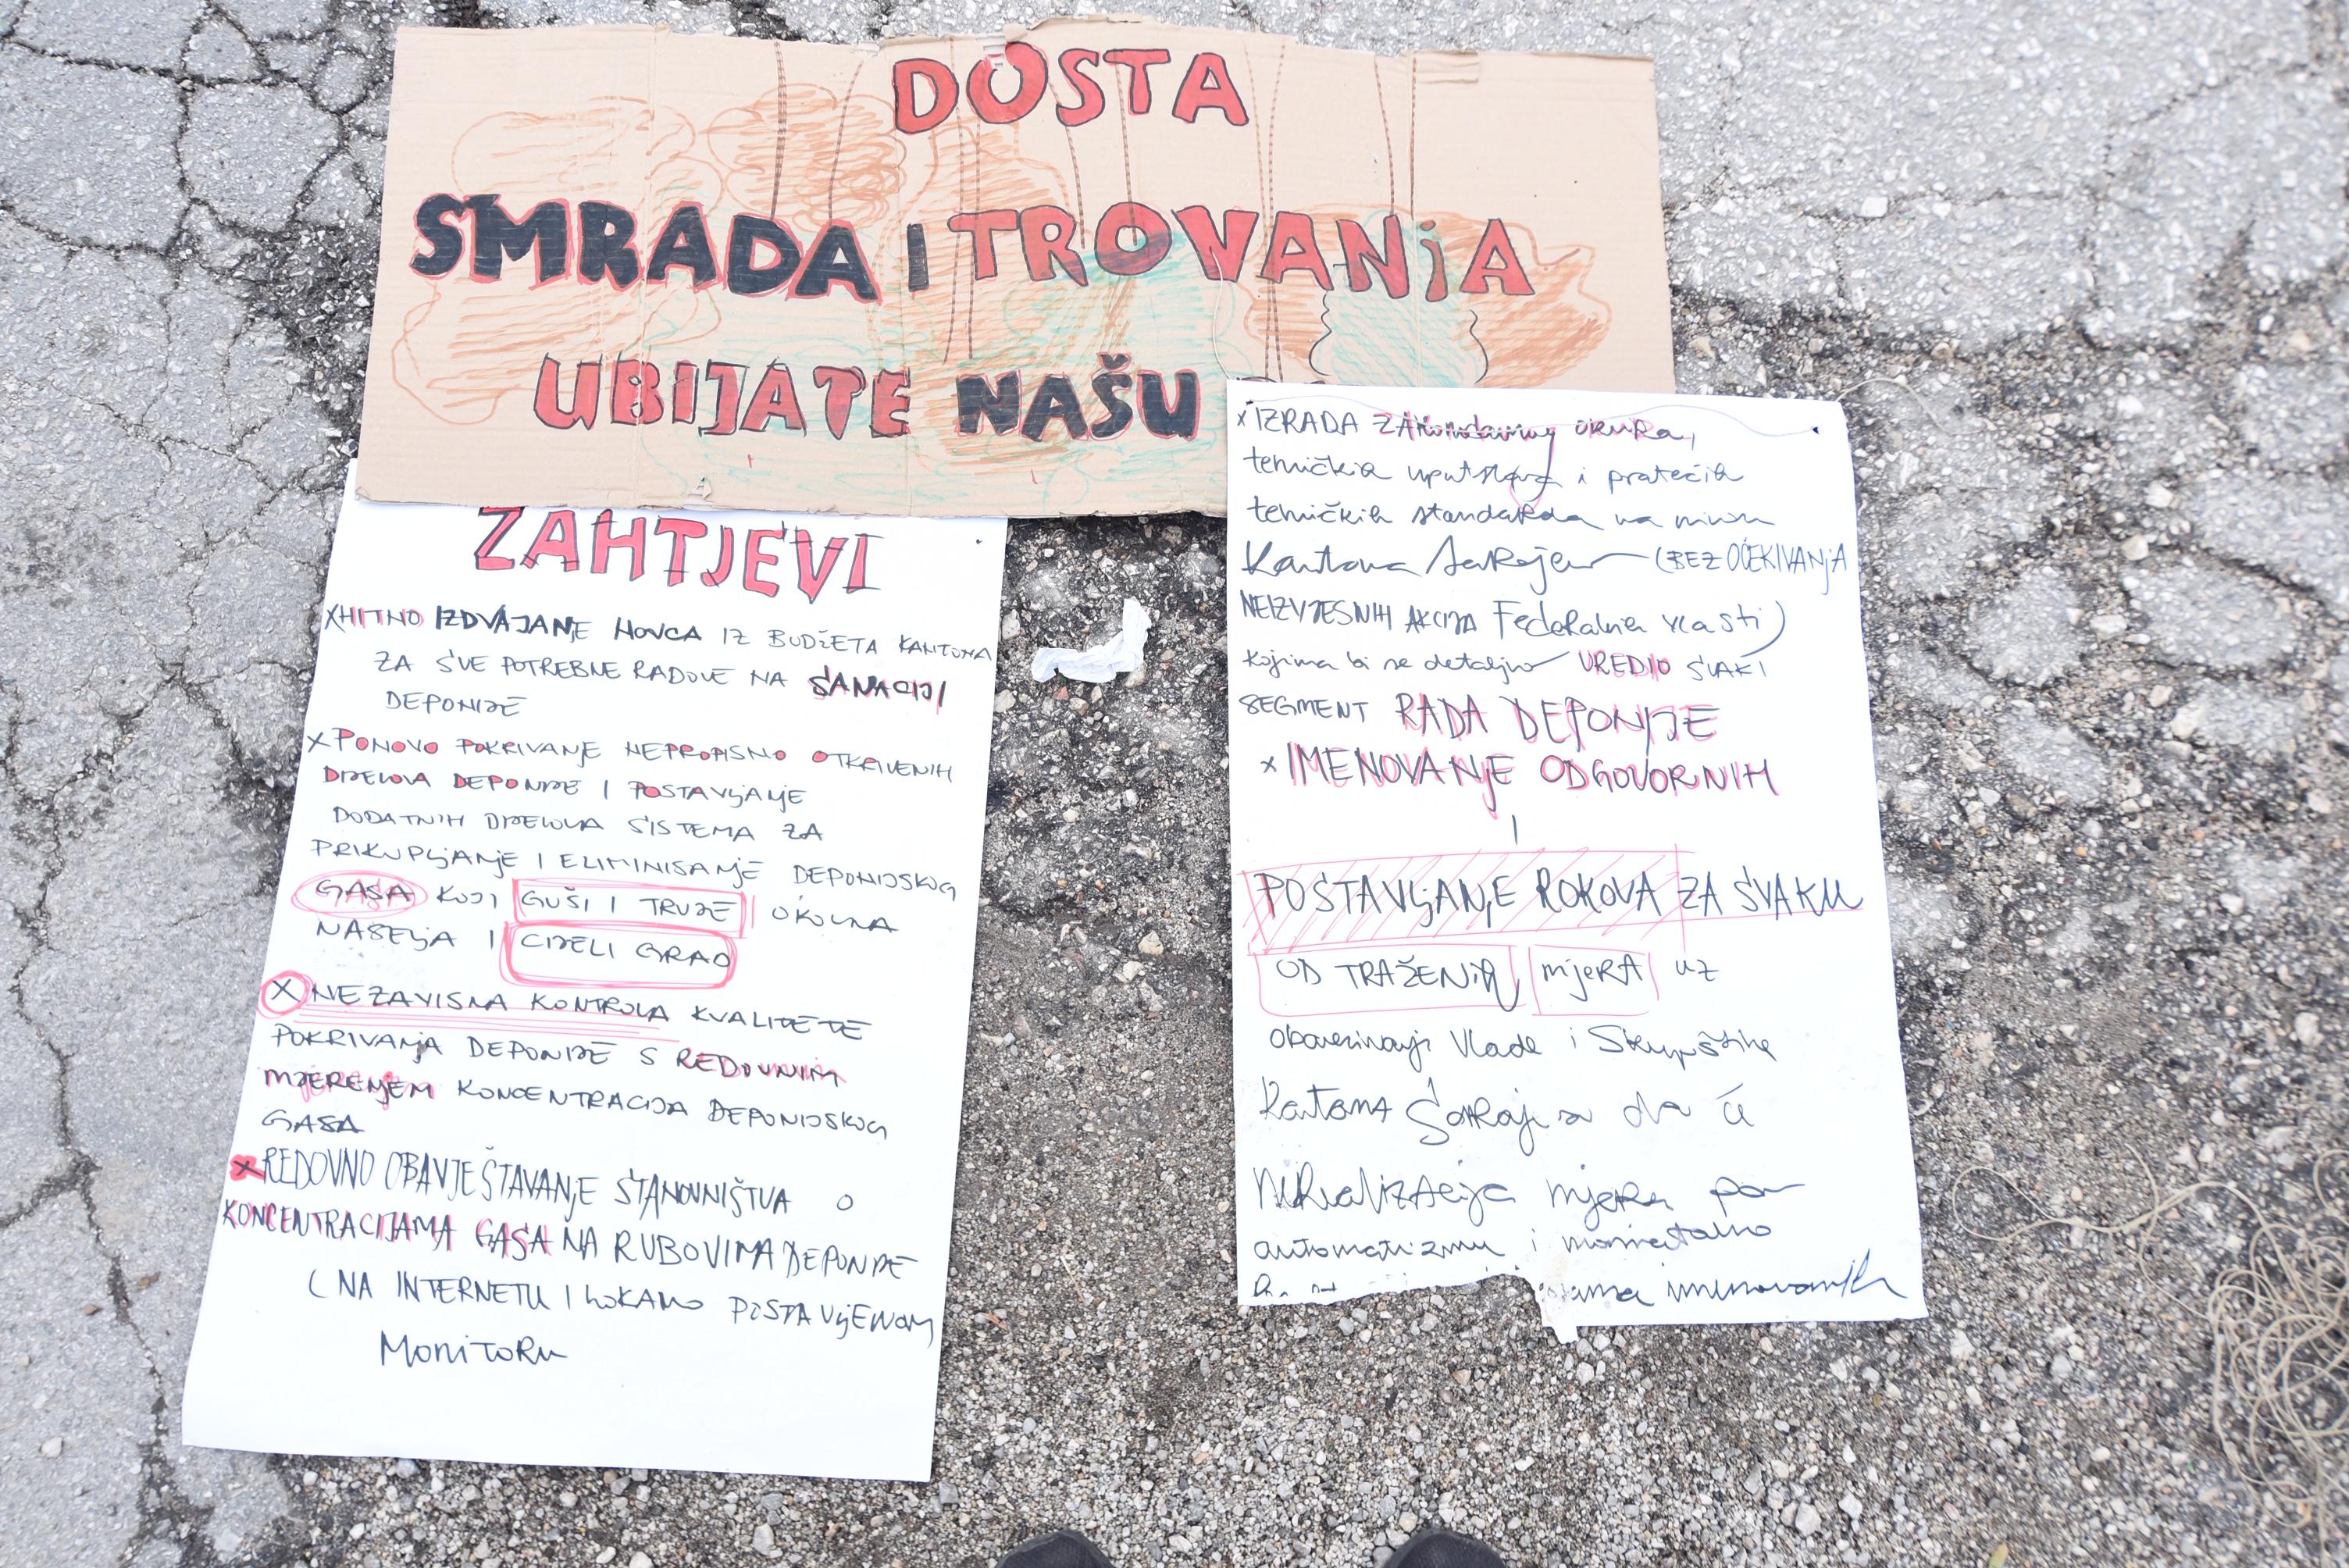 DOSTA
SMRADA I TROVANjA
UBIJATE NAŠU
ZAHTJEVI
x HITNO IZDVAJANJE NOVCA IZ BUDŽETA KANTONA
ZA SVE POTREBNE RADOVE NA SANACIJI
DEPONIJE
x PONOVO POKRIVANJE NEPROPISNO OTKRIVENIH
DIJELOVA DEPONIJE I POSTAVLJANJE
DODATNIH DIJELOVA SISTEMA ZA
PRIKUPLJANJE I ELIMINISANJE DEPONIJSKOG
GASA KOJI GUŠI I TRUJE OKOLNA
NASELJA I CIJELI GRAD
x NEZAVISNA KONTROLA KVALITETE
POKRIVANJA DEPONIJE S REDOVNIM
MJERENJEM KONCENTRACIJA DEPONIJSKOG
GASA
x REDOVNO OBAVJEŠTAVANJE STANOVNIŠTVA O
KONCENTRACIJAMA GASA NA RUBOVIMA DEPONIJE
(NA INTERNETU I LOKALNO POSTAVLJENOM
MONITORU
x IZRADA ZAKonodavnog okvira,
tehničkih uputstava i pratećih
tehničkih standarda na nivou
Kantona Sarajevo (BEZ OČEKIVANjA
NEIZVJESNIH AKCIJA Federalnih vlasti)
kojima bi se detaljno UREDIO SVAKI
SEGMENT RADA DEPONIJE
x IMENOVANJE ODGOVORNIH
I
POSTAVLJANJE ROKOVA ZA SVAKU
OD TRAŽENIH MJERA uz
Vlade i Skupštine
Kantona Sarajevo da će
NeRealizacija mjera po
automatizmu i momentalno
imenovanih